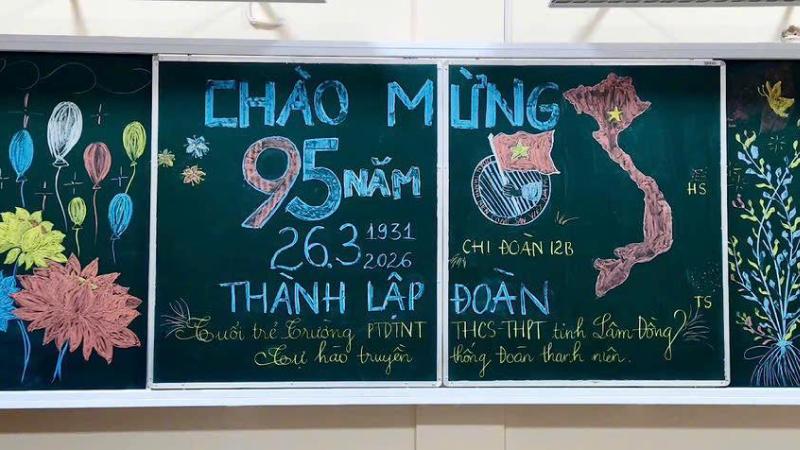 CHÀO MỪNG
95 NĂM
26.3 1931
2026
CHI ĐOÀN 12B
HS
TS
THÀNH LẬP ĐOÀN
Tuổi trẻ Trường PTDTNT THCS-THPT tỉnh Lâm Đồng
Tự hào truyền thống Đoàn thanh niên.